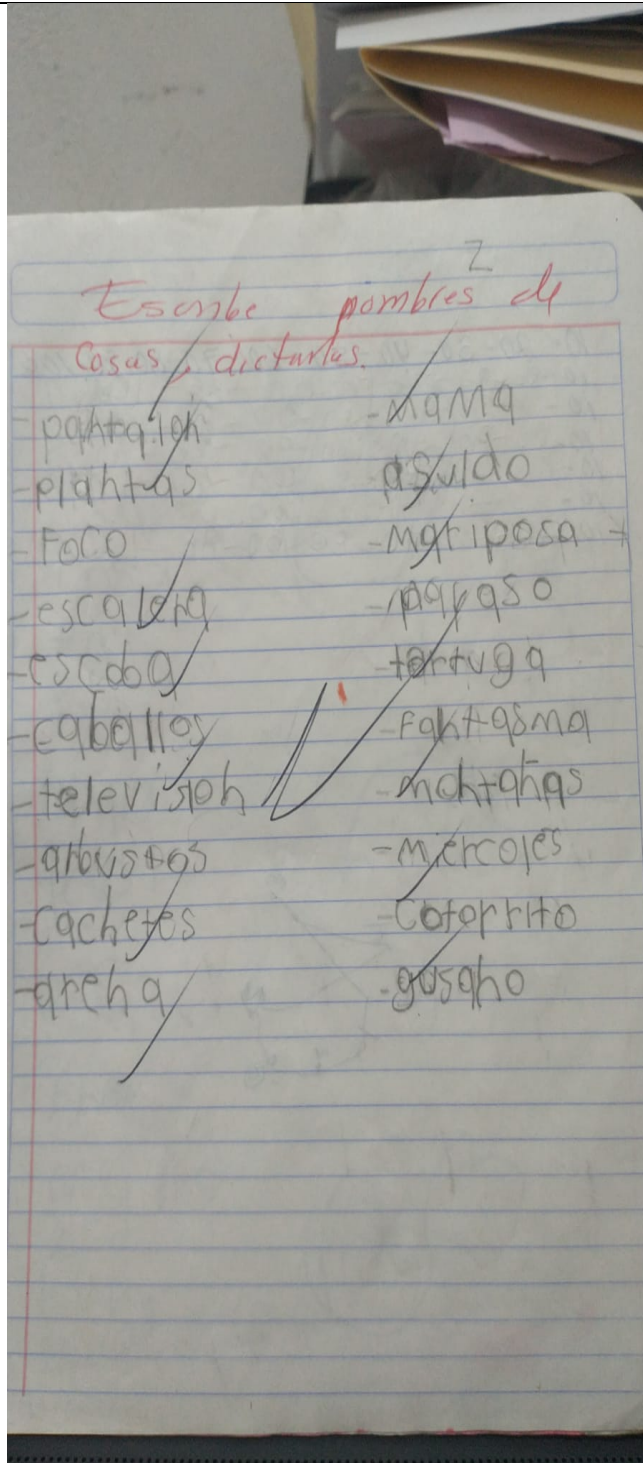 2
Escribe nombres de
cosas, dictarlas.
- pantalon
- plantas
- Foco
- escalera
- escoba
- caballos
- television
- arbustos
- cachetes
- arena
- MaMa
- Mariposa
- payaso
- tortuga
- Fantasma
- montañas
- miercoles
- Cotorrito
- gusano